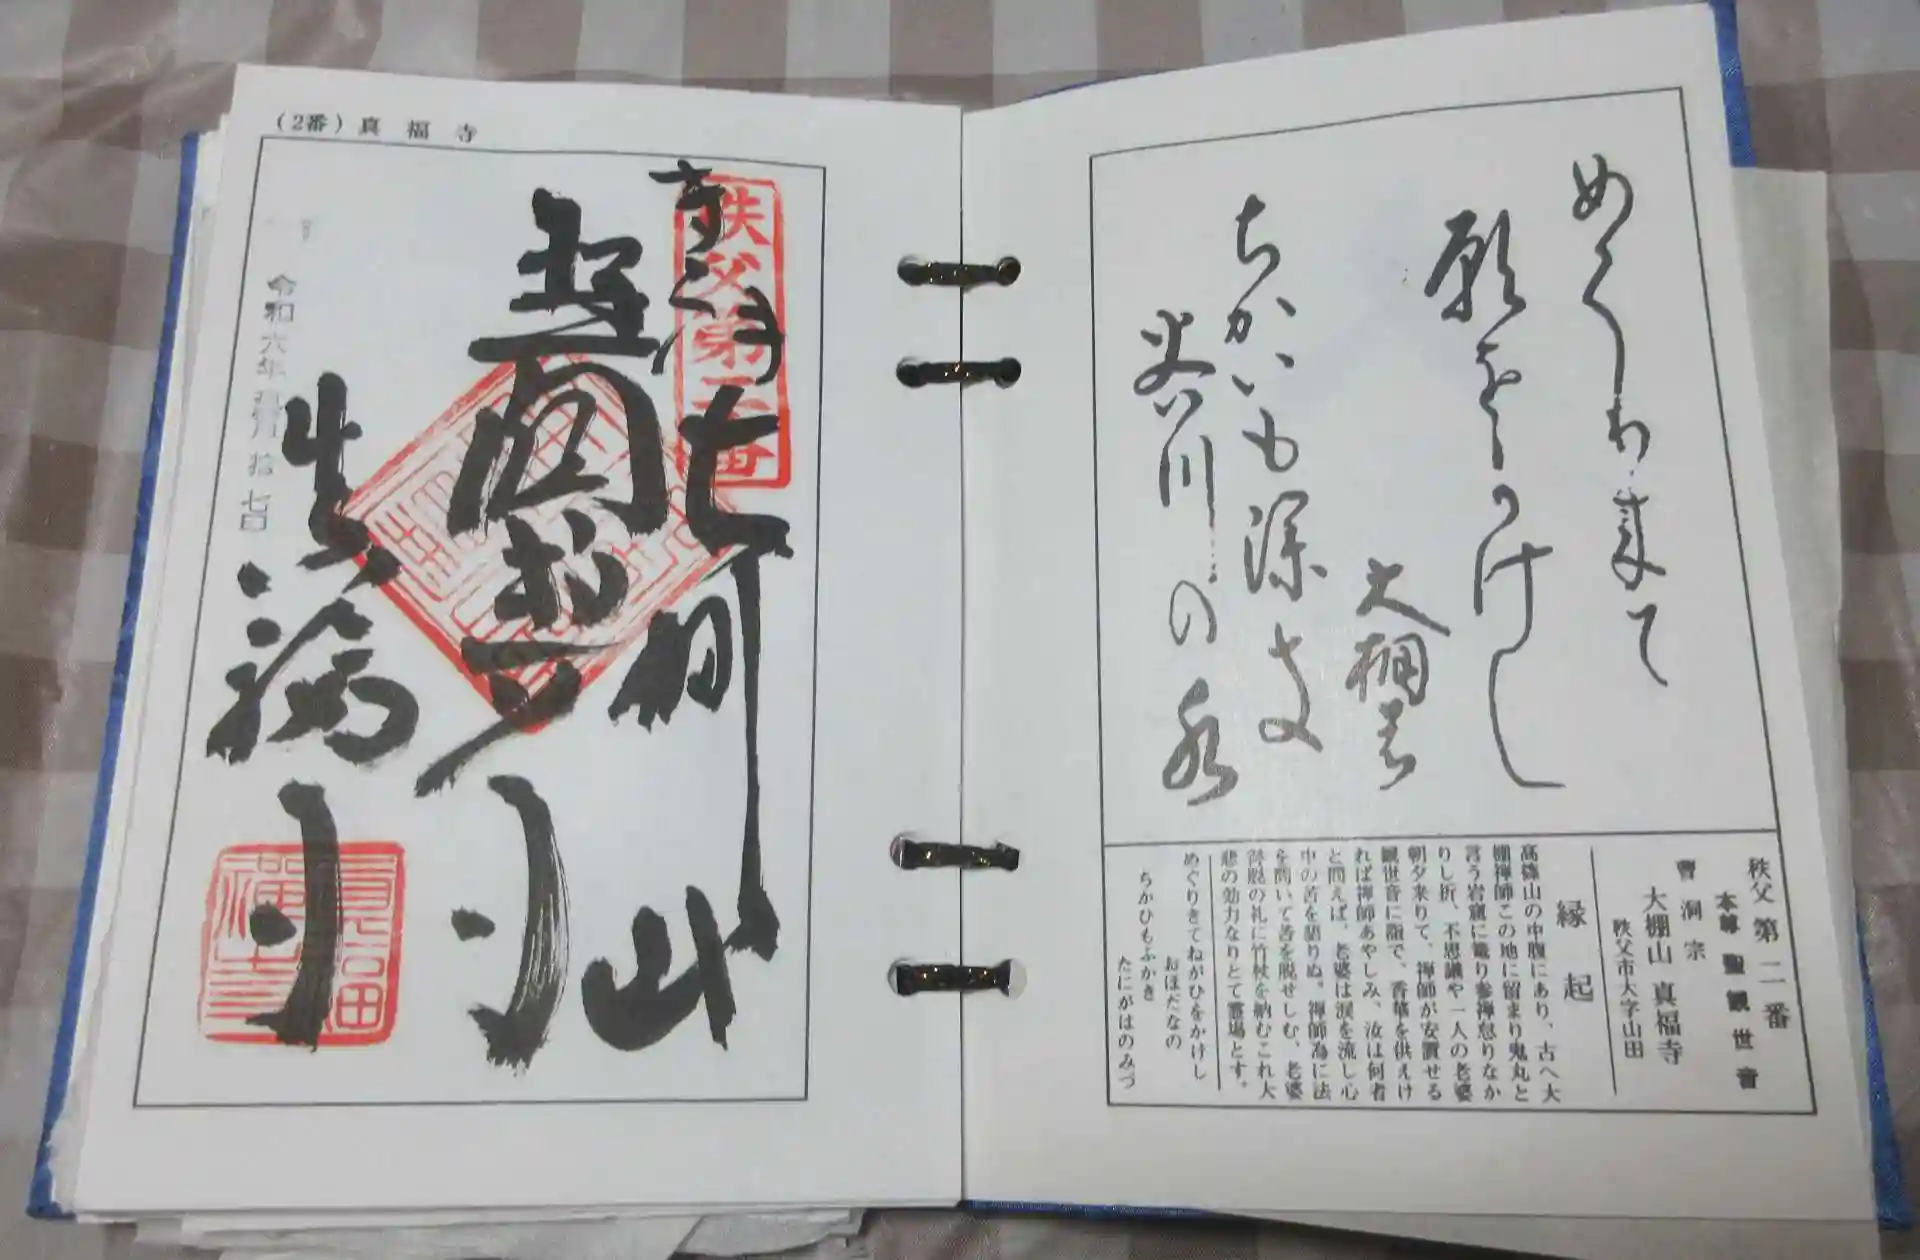 めくり来て
願をかけし
大棚の
ちかいも深き
谷川の水
秩父 第二番
本尊 聖観世音
曹洞宗
大棚山 真福寺
秩父市大字山田
縁起
高篠山の中腹にあり、古へ大
棚禅師この地に留まり鬼丸と
言う岩窟に篭り参禅怠りなか
りし折、不思議や一人の老婆
朝夕来りて、禅師が安置せる
観世音に詣で、香華を供えけ
れば禅師あやしみ、汝は何者
と問えば、老婆は涙を流し心
中の苦を語りぬ。禅師為に法
を問いて苦を脱せしむ、老婆
解脱の礼に竹杖を納むこれ大
悲の効力なりとて霊場とす。
めぐりきてねがひをかけし
おほだなの
ちかひもふかき
たにがはのみづ
(2番) 真福寺
秩父第二番
大棚山
真福寺
令和六年 月拾七日